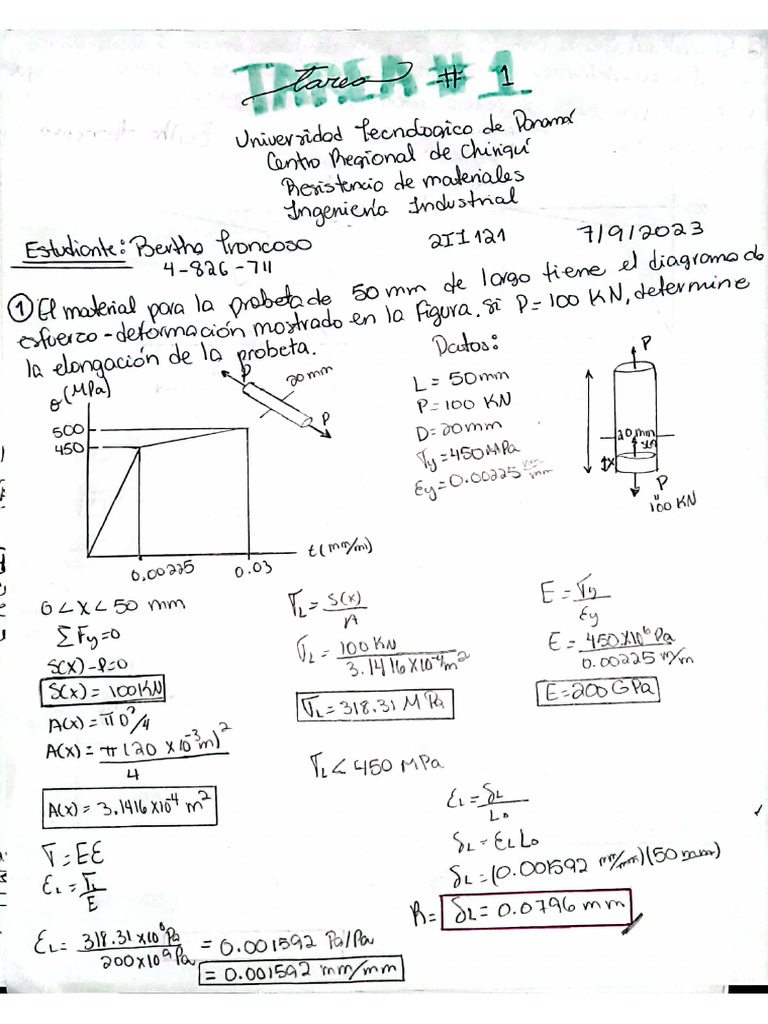 TAREA #1
tarea # 1
Universidad Tecnologico de Panamá
Centro Regional de Chiriquí
Resistencia de materiales
Ingeniería Industrial
Estudiante: Bertha Troncoso
2II121
7/9/2023
4-826-711
① El material para la probeta de 50 mm de largo tiene el diagrama de
esfuerzo-deformación mostrado en la Figura. Si P=100 KN, determine
la elongación de la probeta.
σ(MPa)
500
450
0,00225
0.03
t(mm/m)
P
20mm
P
Datos:
L = 50mm
P=100 KN
D=20mm
σy=450MPa
Ey=0.00225 mm/mm
P
20mm
x
P
100 KN
0<X<50 mm
ΣFy=0
S(X)-P=0
S(X)=100KN
A(X)=πD²/4
A(X)=π(20 x10⁻³m)²/4
A(X)= 3.1416x10⁻⁴ m²
σ=EƐ
ƐL=σL/E
ƐL=318.31x10⁶Pa/200x10⁹Pa = 0.001592 Pa/Pa
= 0.001592 mm/mm
σL=S(x)/A
σL=100KN/3.1416x10⁻⁴m²
σL=318.31 MPa
σL<450 MPa
E=σy/Ɛy
E=450x10⁶Pa/0.00225m/m
E=200GPa
ƐL=δL/Lo
δL=ƐLLo
δL=(0.001592 mm/mm)(50mm)
R= δL=0.0796mm